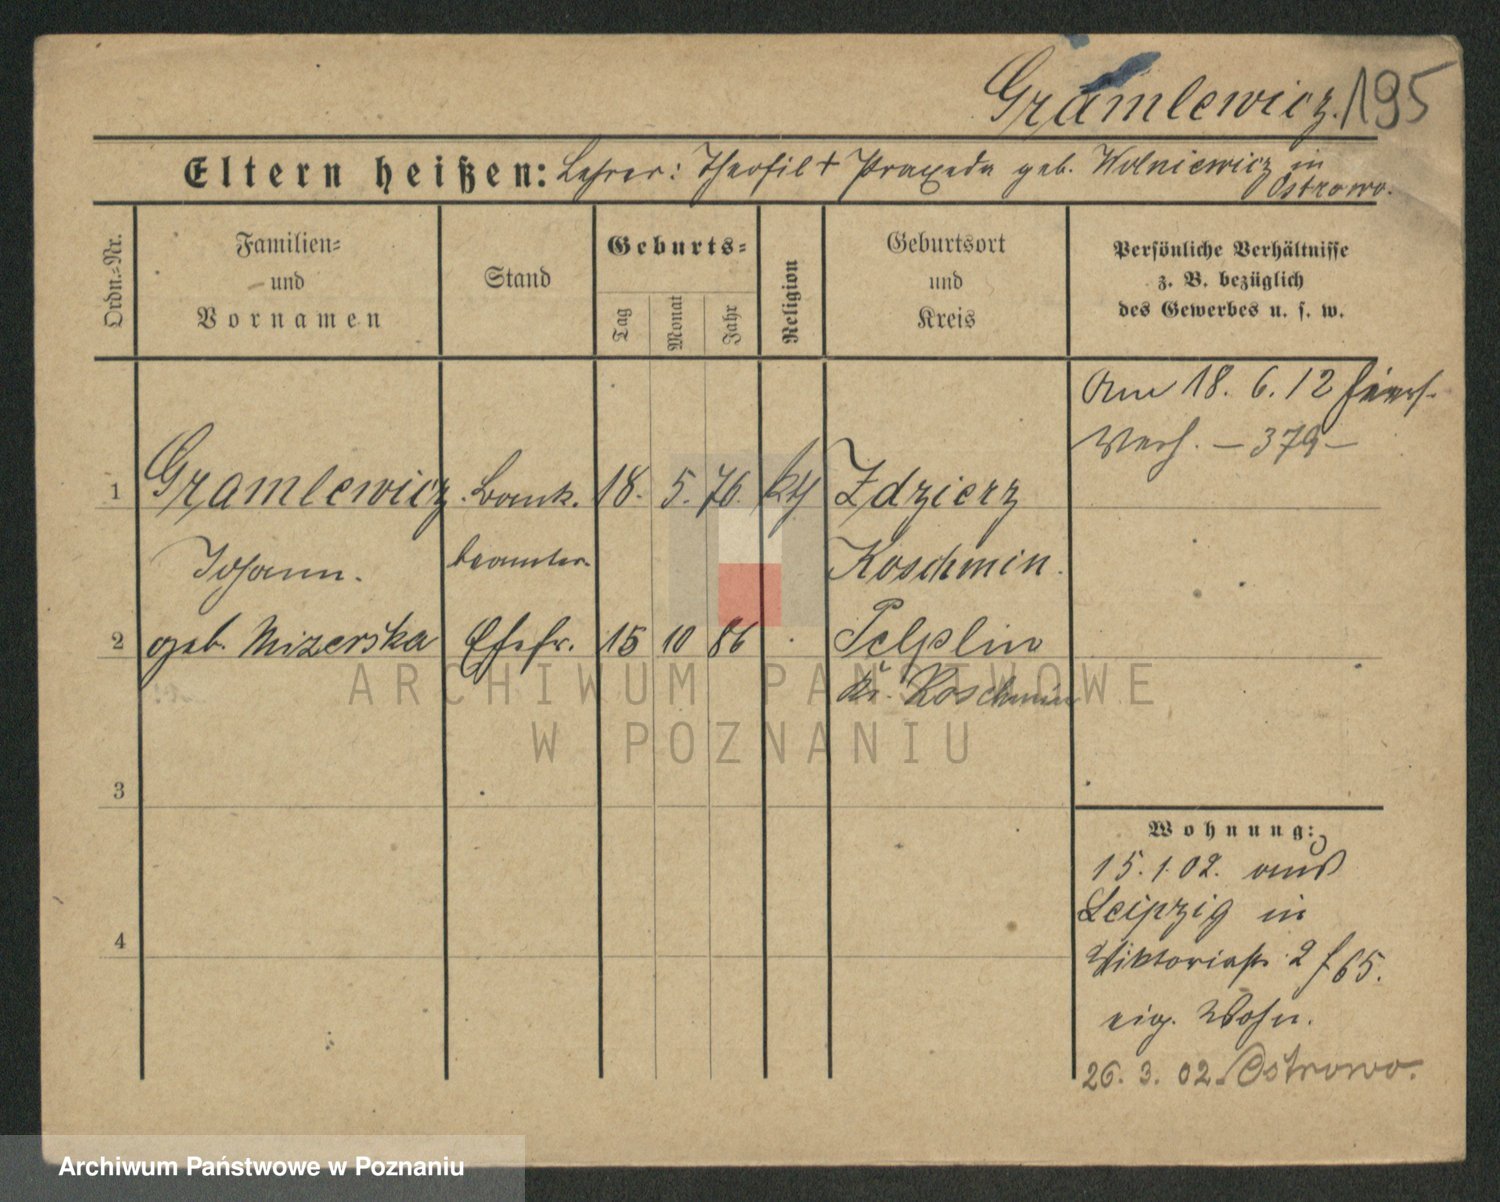 Gramlewicz. 195
Eltern heißen: Lehrer: Theofil + Praxeda geb. Wolniewicz in
Ostrowo.
Ordn.-Nr.
Familien-
und
Vornamen
Stand
Geburts-
Tag
Monat
Jahr
Religion
Geburtsort
und
Kreis
Persönliche Verhältnisse
z. B. bezüglich
des Gewerbes u. s. w.
Am 18. 6. 12 hierh.
Verh. – 379 –
1 Gramlewicz Bank. 18. 5. 76. kth Zdzierz
Johann. beamter Koschmin.
2 geb. Mizerska Ehefr. 15 10 86 Pelplin
Kr. Koschmin
3
4
Wohnung:
15. 1. 02. aus
Leipzig in
Viktoriastr. 2 f 65.
eig. Wohn.
26. 3. 02. Ostrowo.
ARCHIWUM PAŃSTWOWE
W POZNANIU
Archiwum Państwowe w Poznaniu